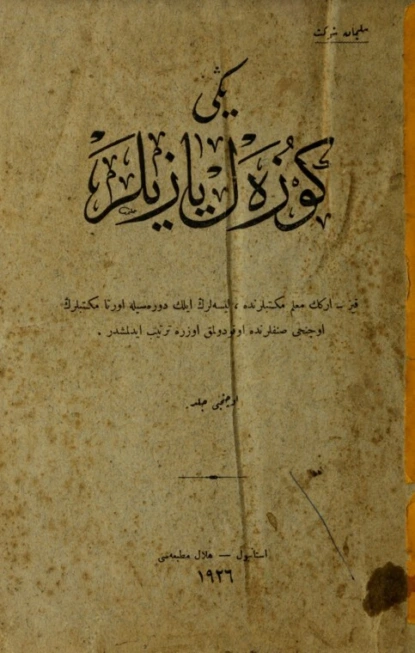 سلیمان شوكت
یڭی
كوزه‌ل یازیلر
قیز – اركك معلم مكتبلرنده ، لیسه‌لرڭ ایلك دوره‌سیله اورتا مكتبلرڭ
اوچنجی صنفلرنده اوقودولمق اوزره ترتیب ایدلمشدر .
اوچنجی جلد
استانبول — هلال مطبعه‌سی
١٩٢٦